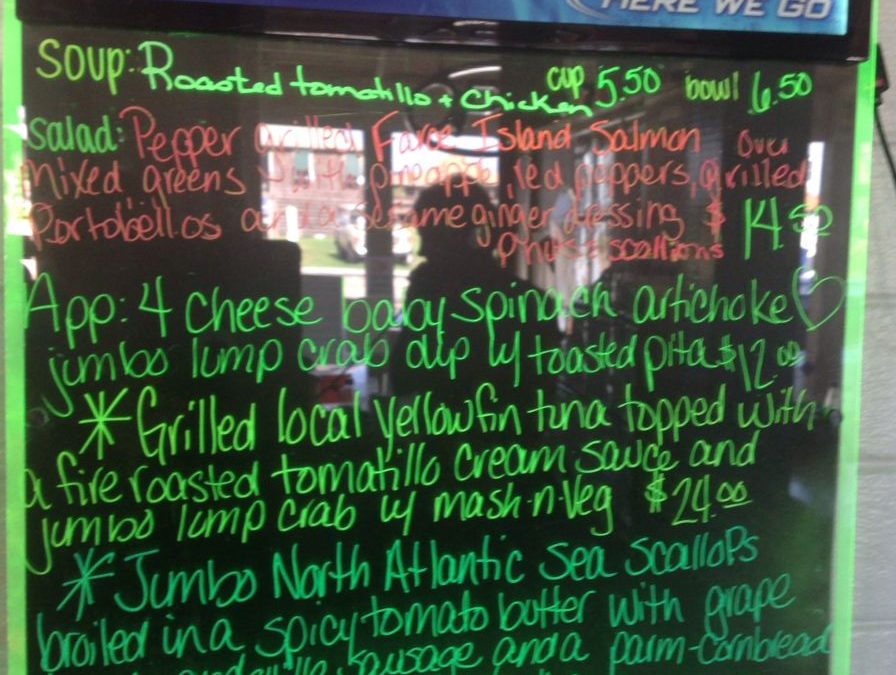 HERE WE GO
Soup: Roasted tomatillo + Chicken cup 5.50 bowl 6.50
Salad: Pepper grilled Faroe Island Salmon over
mixed greens with pineapple, red peppers, grilled
Portobellos and a sesame ginger dressing $14.50
scallions
App: 4 cheese baby spinach artichoke
jumbo lump crab dip w/ toasted pita $12.00
*Grilled local yellowfin tuna topped with
a fire roasted tomatillo cream sauce and
jumbo lump crab w/ mash-n-veg $24.00
*Jumbo North Atlantic Sea Scallops
broiled in a spicy tomato butter with grape
sausage and a parm-cornbread